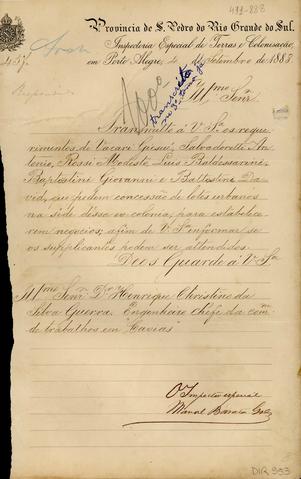 499-888
Provincia de S. Pedro do Rio Grande do Sul.
Inspectoria Especial de Terras e Colonisação,
em Porto Alegre, 4 de Setembro de 1888.
457.
Illmo Senr.
transcripta
Transmitto á V. Sa os reque-
rimentos de Vacari Giosué, Salvadoretti An-
tonio, Rossi Modesto, Luis Baldessarini,
Baptistini Giovanni e Battistini Da-
vid, que pedem concessão de lotes urbanos
na séde dessa ex colonia, para estabelece-
rem negocios; afim de V. Sa informar se
os supplicantes podem ser attendidos.
Deos Guarde á V. Sa
Illmo Senr. Dor Henrique Christino da
Silva Guerra. Engenheiro Chefe da Comm
de trabalhos em "Caxias"
O Inspector especial
Manoel Barata
DIR 993